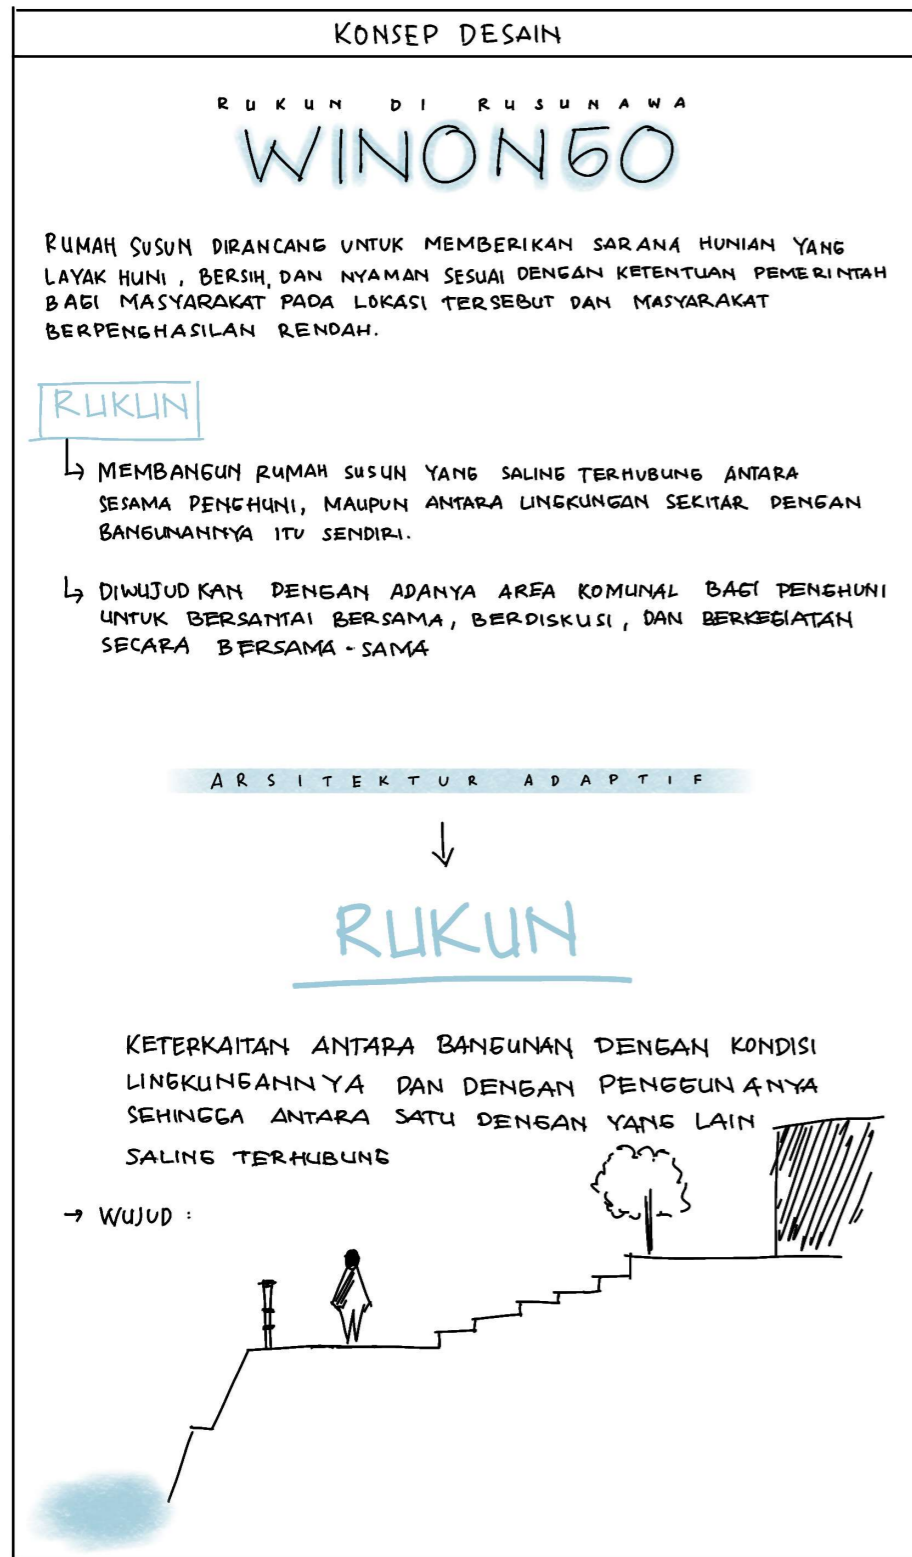 KONSEP DESAIN
RUKUN DI RUSUNAWA
WINONGO
RUMAH SUSUN DIRANCANG UNTUK MEMBERIKAN SARANA HUNIAN YANG
LAYAK HUNI, BERSIH, DAN NYAMAN SESUAI DENGAN KETENTUAN PEMERINTAH
BAGI MASYARAKAT PADA LOKASI TERSEBUT DAN MASYARAKAT
BERPENGHASILAN RENDAH.
RUKUN
↳ MEMBANGUN RUMAH SUSUN YANG SALING TERHUBUNG ANTARA
SESAMA PENGHUNI, MAUPUN ANTARA LINGKUNGAN SEKITAR DENGAN
BANGUNANNYA ITU SENDIRI.
↳ DIWUJUDKAN DENGAN ADANYA AREA KOMUNAL BAGI PENGHUNI
UNTUK BERSANTAI BERSAMA, BERDISKUSI, DAN BERKEGIATAN
SECARA BERSAMA-SAMA
ARSITEKTUR ADAPTIF
↓
RUKUN
KETERKAITAN ANTARA BANGUNAN DENGAN KONDISI
LINGKUNGANNYA DAN DENGAN PENGGUNANYA
SEHINGGA ANTARA SATU DENGAN YANG LAIN
SALING TERHUBUNG
→ WUJUD :